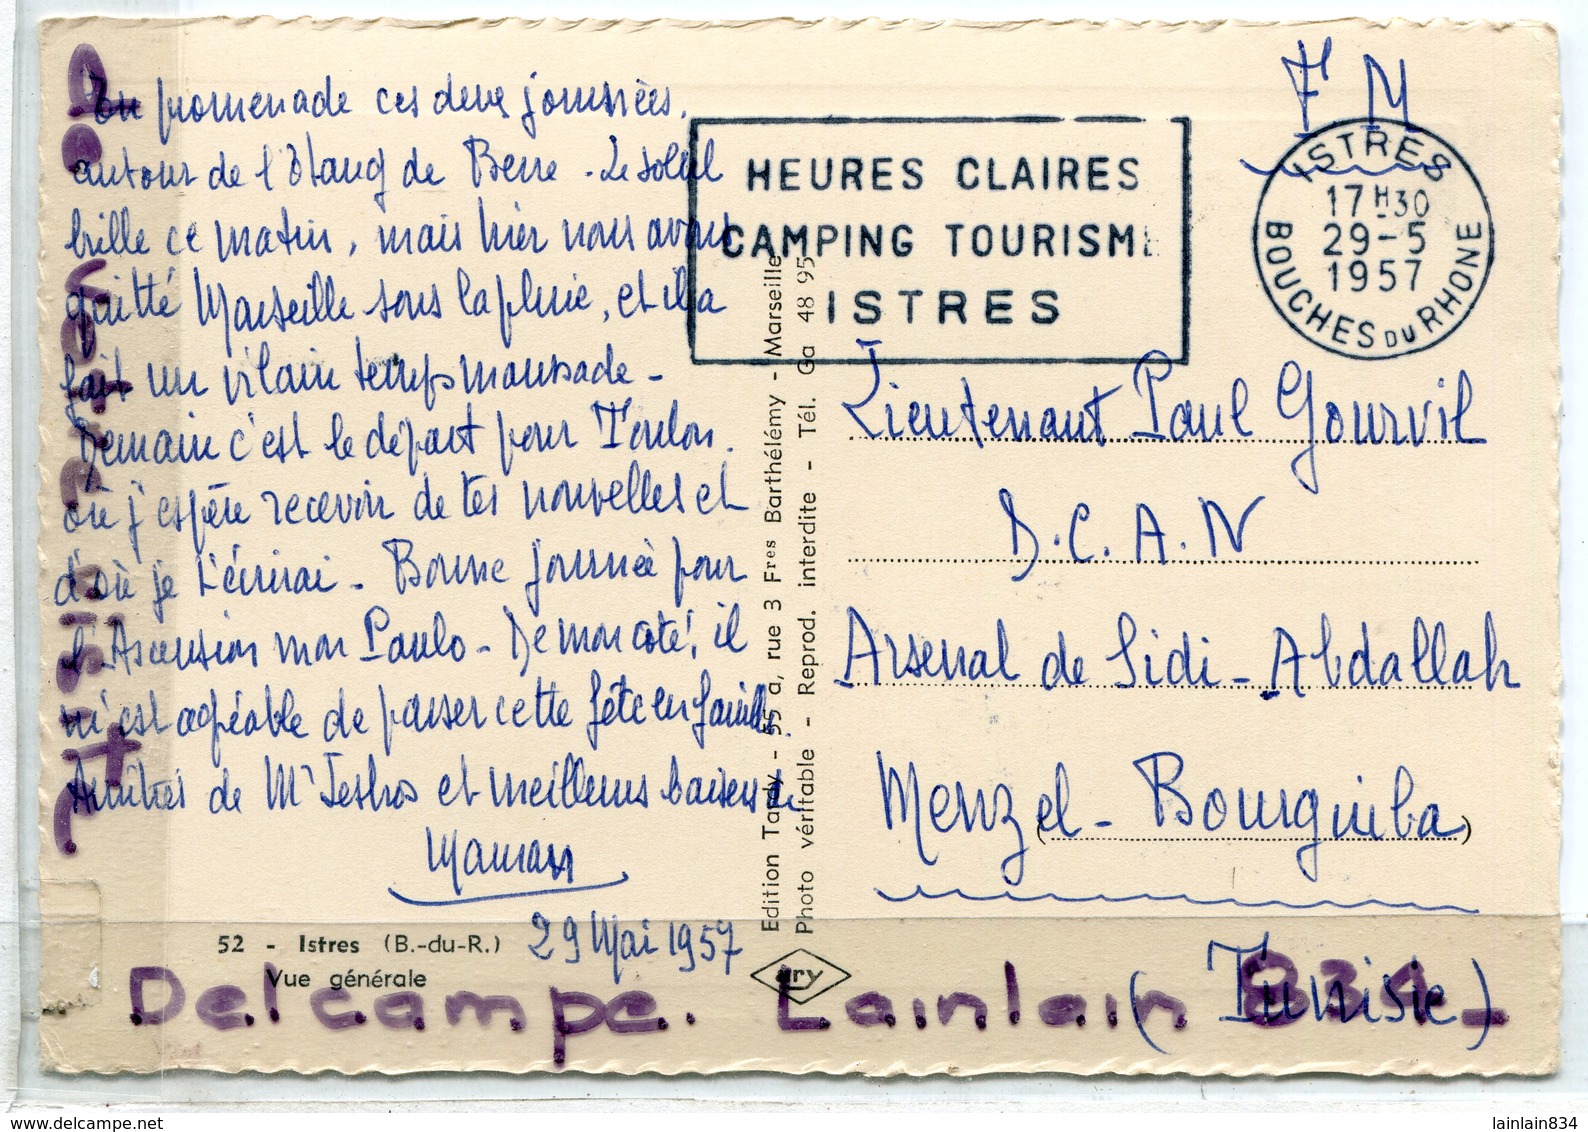 En promenade ces deux journées,
autour de l'Etang de Berre. Le soleil
brille ce matin, mais hier nous avons
quitté Marseille sous la pluie, et il a
fait un vilain temps maussade -
Demain c'est le départ pour Toulon.
où j'espère recevoir de tes nouvelles et
d'où je t'écrirai - Bonne journée pour
l'Ascension mon Paulo - De mon coté, il
m'est agréable de passer cette fête en famille.
Amitiés de Mr et meilleurs baisers de
Maman
29 Mai 1957
52 - Istres (B.-du-R.)
Vue générale
Edition Tardy - 55 a, rue 3 Fres Barthélémy - Marseille
Photo véritable - Reprod. interdite - Tél. Ga 48 95
HEURES CLAIRES
CAMPING TOURISME
ISTRES
F M
ISTRES
17H30
29-5
1957
BOUCHES DU RHONE
Lieutenant Paul Gourvil
D.C.A.N
Arsenal de Sidi-Abdallah
Menzel-Bourguiba
(Tunisie)
Delcampe. Lainlain 834_
www.delcampe.net
lainlain834